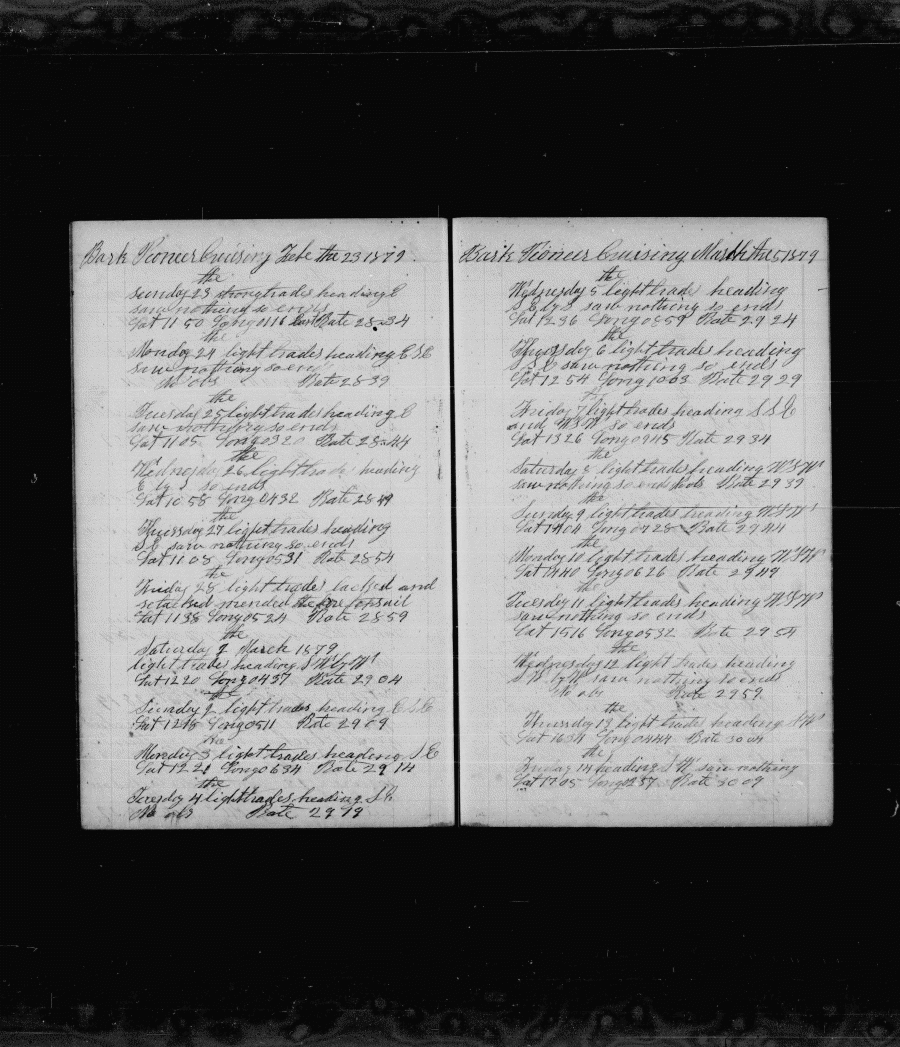 Bark Pioneer Cruising Febe the 23 1879
the
Sunday 23 strong trades heading E
saw nothing so ends
Lat 11 50 Long 0116 Rate 28-34
the
Monday 24 light trades heading E S E
saw nothing so ends
No obs Rate 28 39
the
Tuesday 25 light trades heading E
saw nothing so ends
Lat 11 05 Long 03 20 Rate 28-44
the
Wednesday 26 light trade heading
E by S so ends
Lat 10 58 Long 0432 Rate 28 49
the
Thursday 27 light trades heading
S E saw nothing so ends
Lat 11 08 Long 0531 Rate 28 54
the
Friday 28 light trades tacked and
mended the fore topsail
Lat 11 38 Long 05 24 Rate 28 59
the
Saturday March 1879
light trades heading S W by W
Lat 12 20 Long 0437 Rate 29 04
the
Sunday 2 light trades heading E S E
Lat 12 18 Long 0511 Rate 29 09
the
Monday 3 light trades heading S E
Lat 12 21 Long 0634 Rate 29 14
the
Tuesday 4 light trades heading
No obs Rate 29 19
Bark Pioneer Cruising March the 5 1879
the
Wednesday 5 light trade heading
saw nothing so ends
Lat 12 36 Long 0859 Rate 29 24
the
Thursday 6 light trades heading
S S E saw nothing so ends
Lat 12 54 Long 1003 Rate 29 29
Friday 7 light trades heading S S E
and W S W so ends
Lat 13 26 Long 0945 Rate 29 34
the
Saturday 8 light trades heading W S W
saw nothing so ends No obs Rate 29 39
the
Sunday 9 light trades heading W S W
Lat 14 04 Long 0728 Rate 29 44
the
Monday 10 light trades heading W S W
Lat 14 40 Long 0626 Rate 29 49
the
Tuesday 11 light trades heading W S W
saw nothing so ends
Lat 15 16 Long 0532 Rate 29 54
the
Wednesday 12 light trades heading
S W by W saw nothing so ends
No obs Rate 29 59
the
Thursday 13 light trades heading S W
Lat 16 34 Long 0444 Rate 30 04
the
Friday 14 heading S W saw nothing
Lat 17 05 Long Rate 30 09